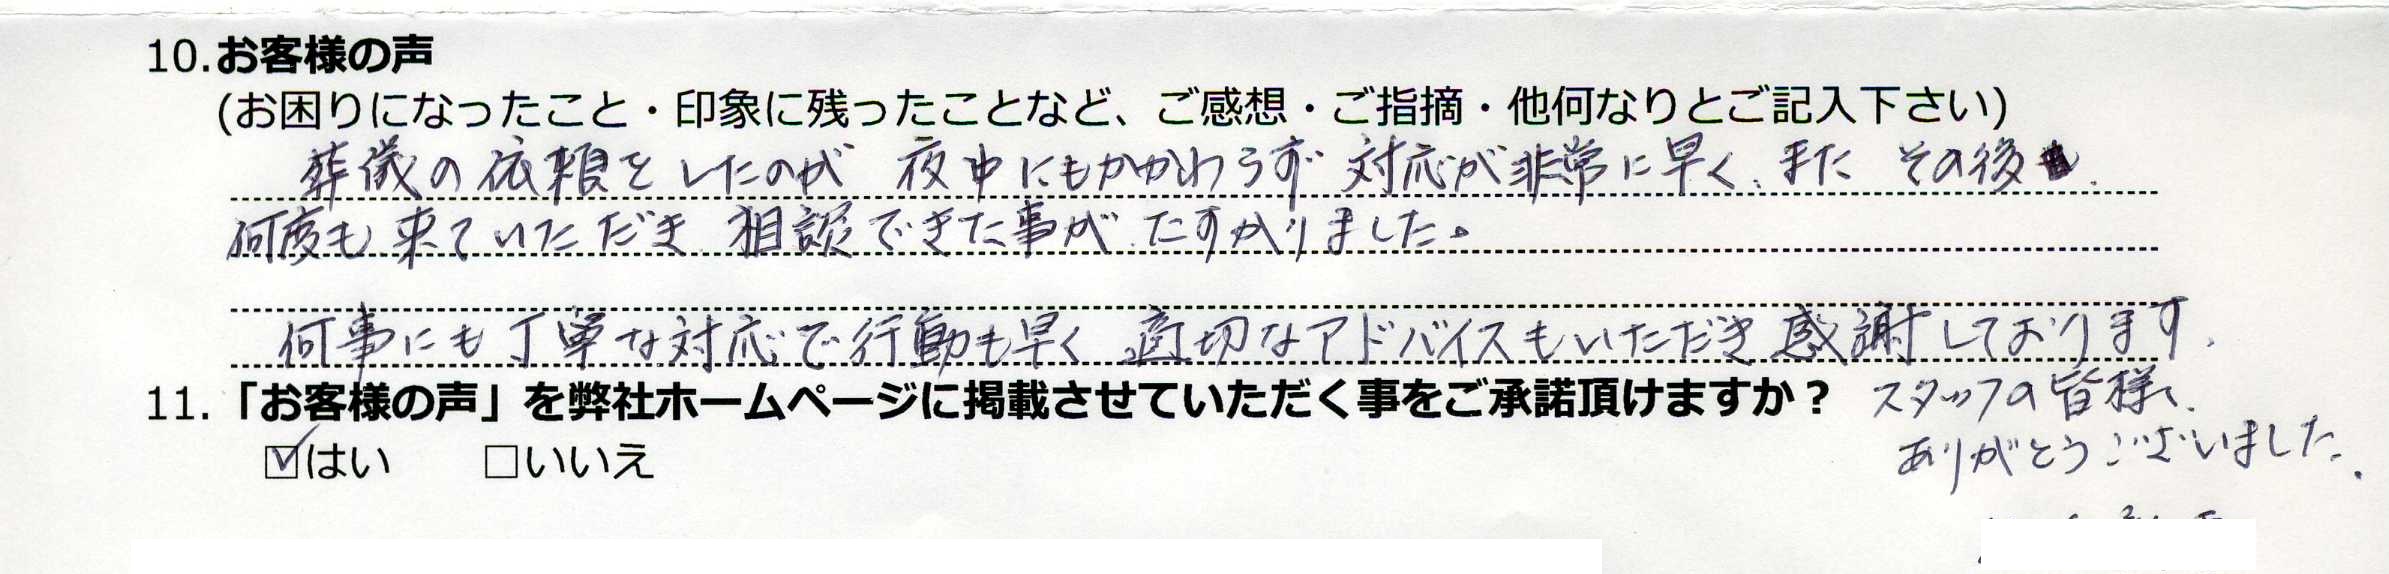 10.お客様の声
(お困りになったこと・印象に残ったことなど、ご感想・ご指摘・他何なりとご記入下さい)
葬儀の依頼をしたのが 夜中にもかかわらず 対応が非常に早く、また その後
何度も来ていただき、相談できた事が、たすかりました。
何事にも丁寧な対応で行動も早く 適切なアドバイスもいただき感謝しております。
11.「お客様の声」を弊社ホームページに掲載させていただく事をご承諾頂けますか？
スタッフの皆様、
☑はい □いいえ
ありがとうございました。